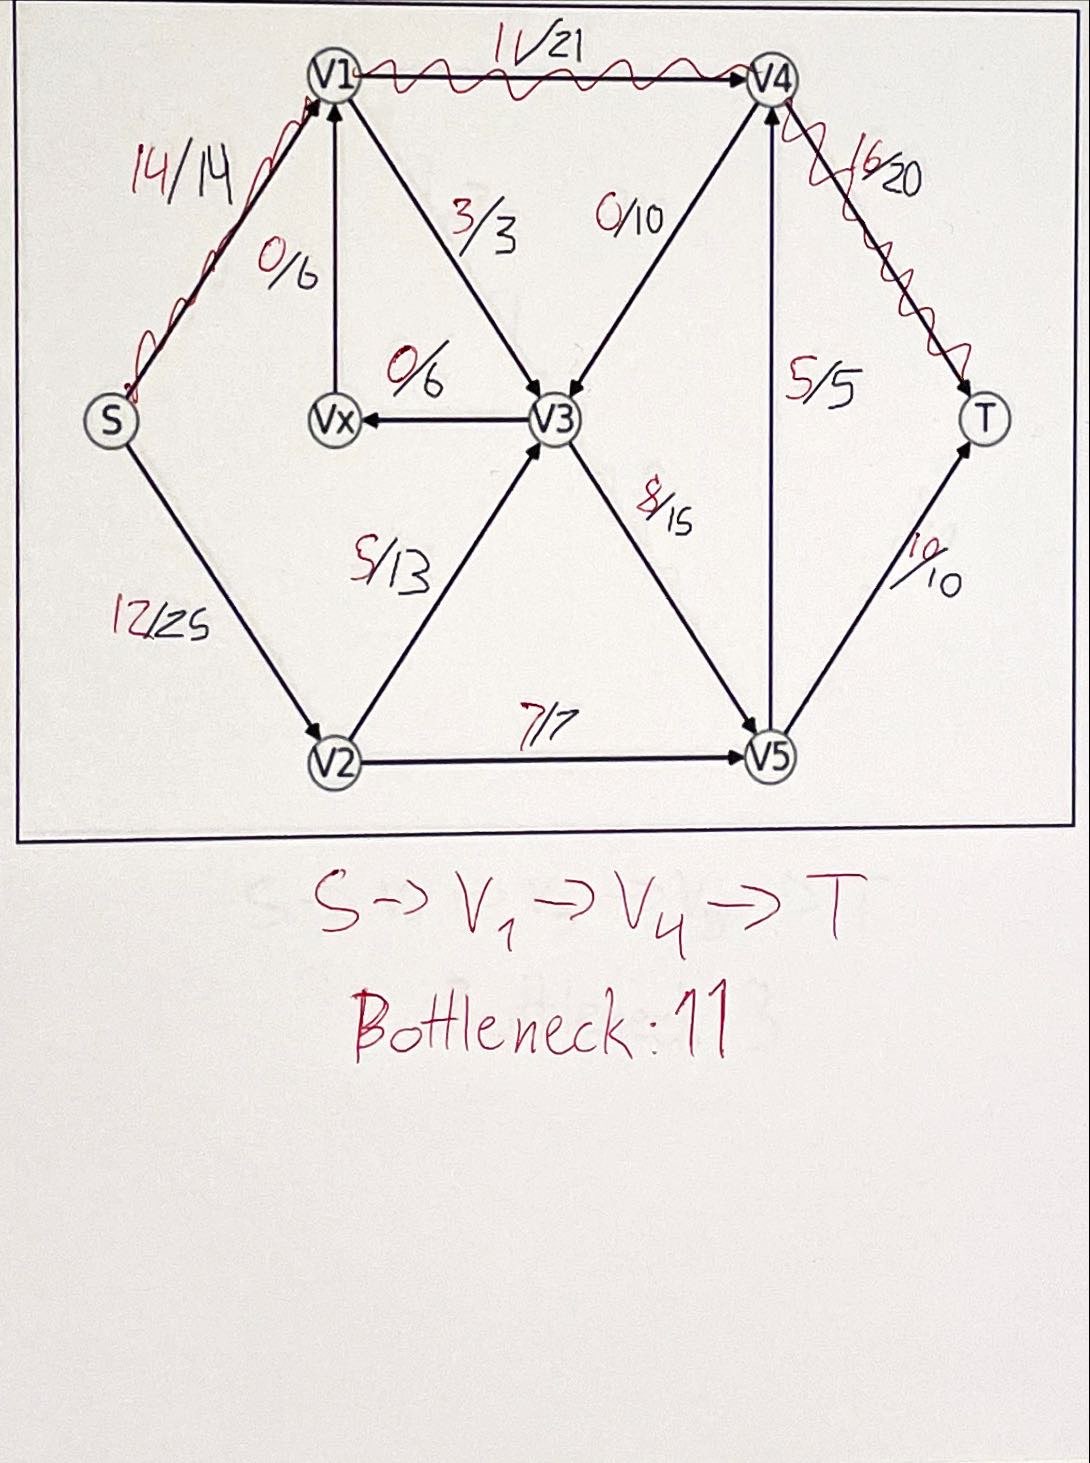 11/21
V1
V4
14/14
16/20
3/3
0/10
0/6
0/6
5/5
S
Vx
V3
T
8/15
5/13
10/10
12/25
7/7
V2
V5
S -> V1 -> V4 -> T
Bottleneck: 11